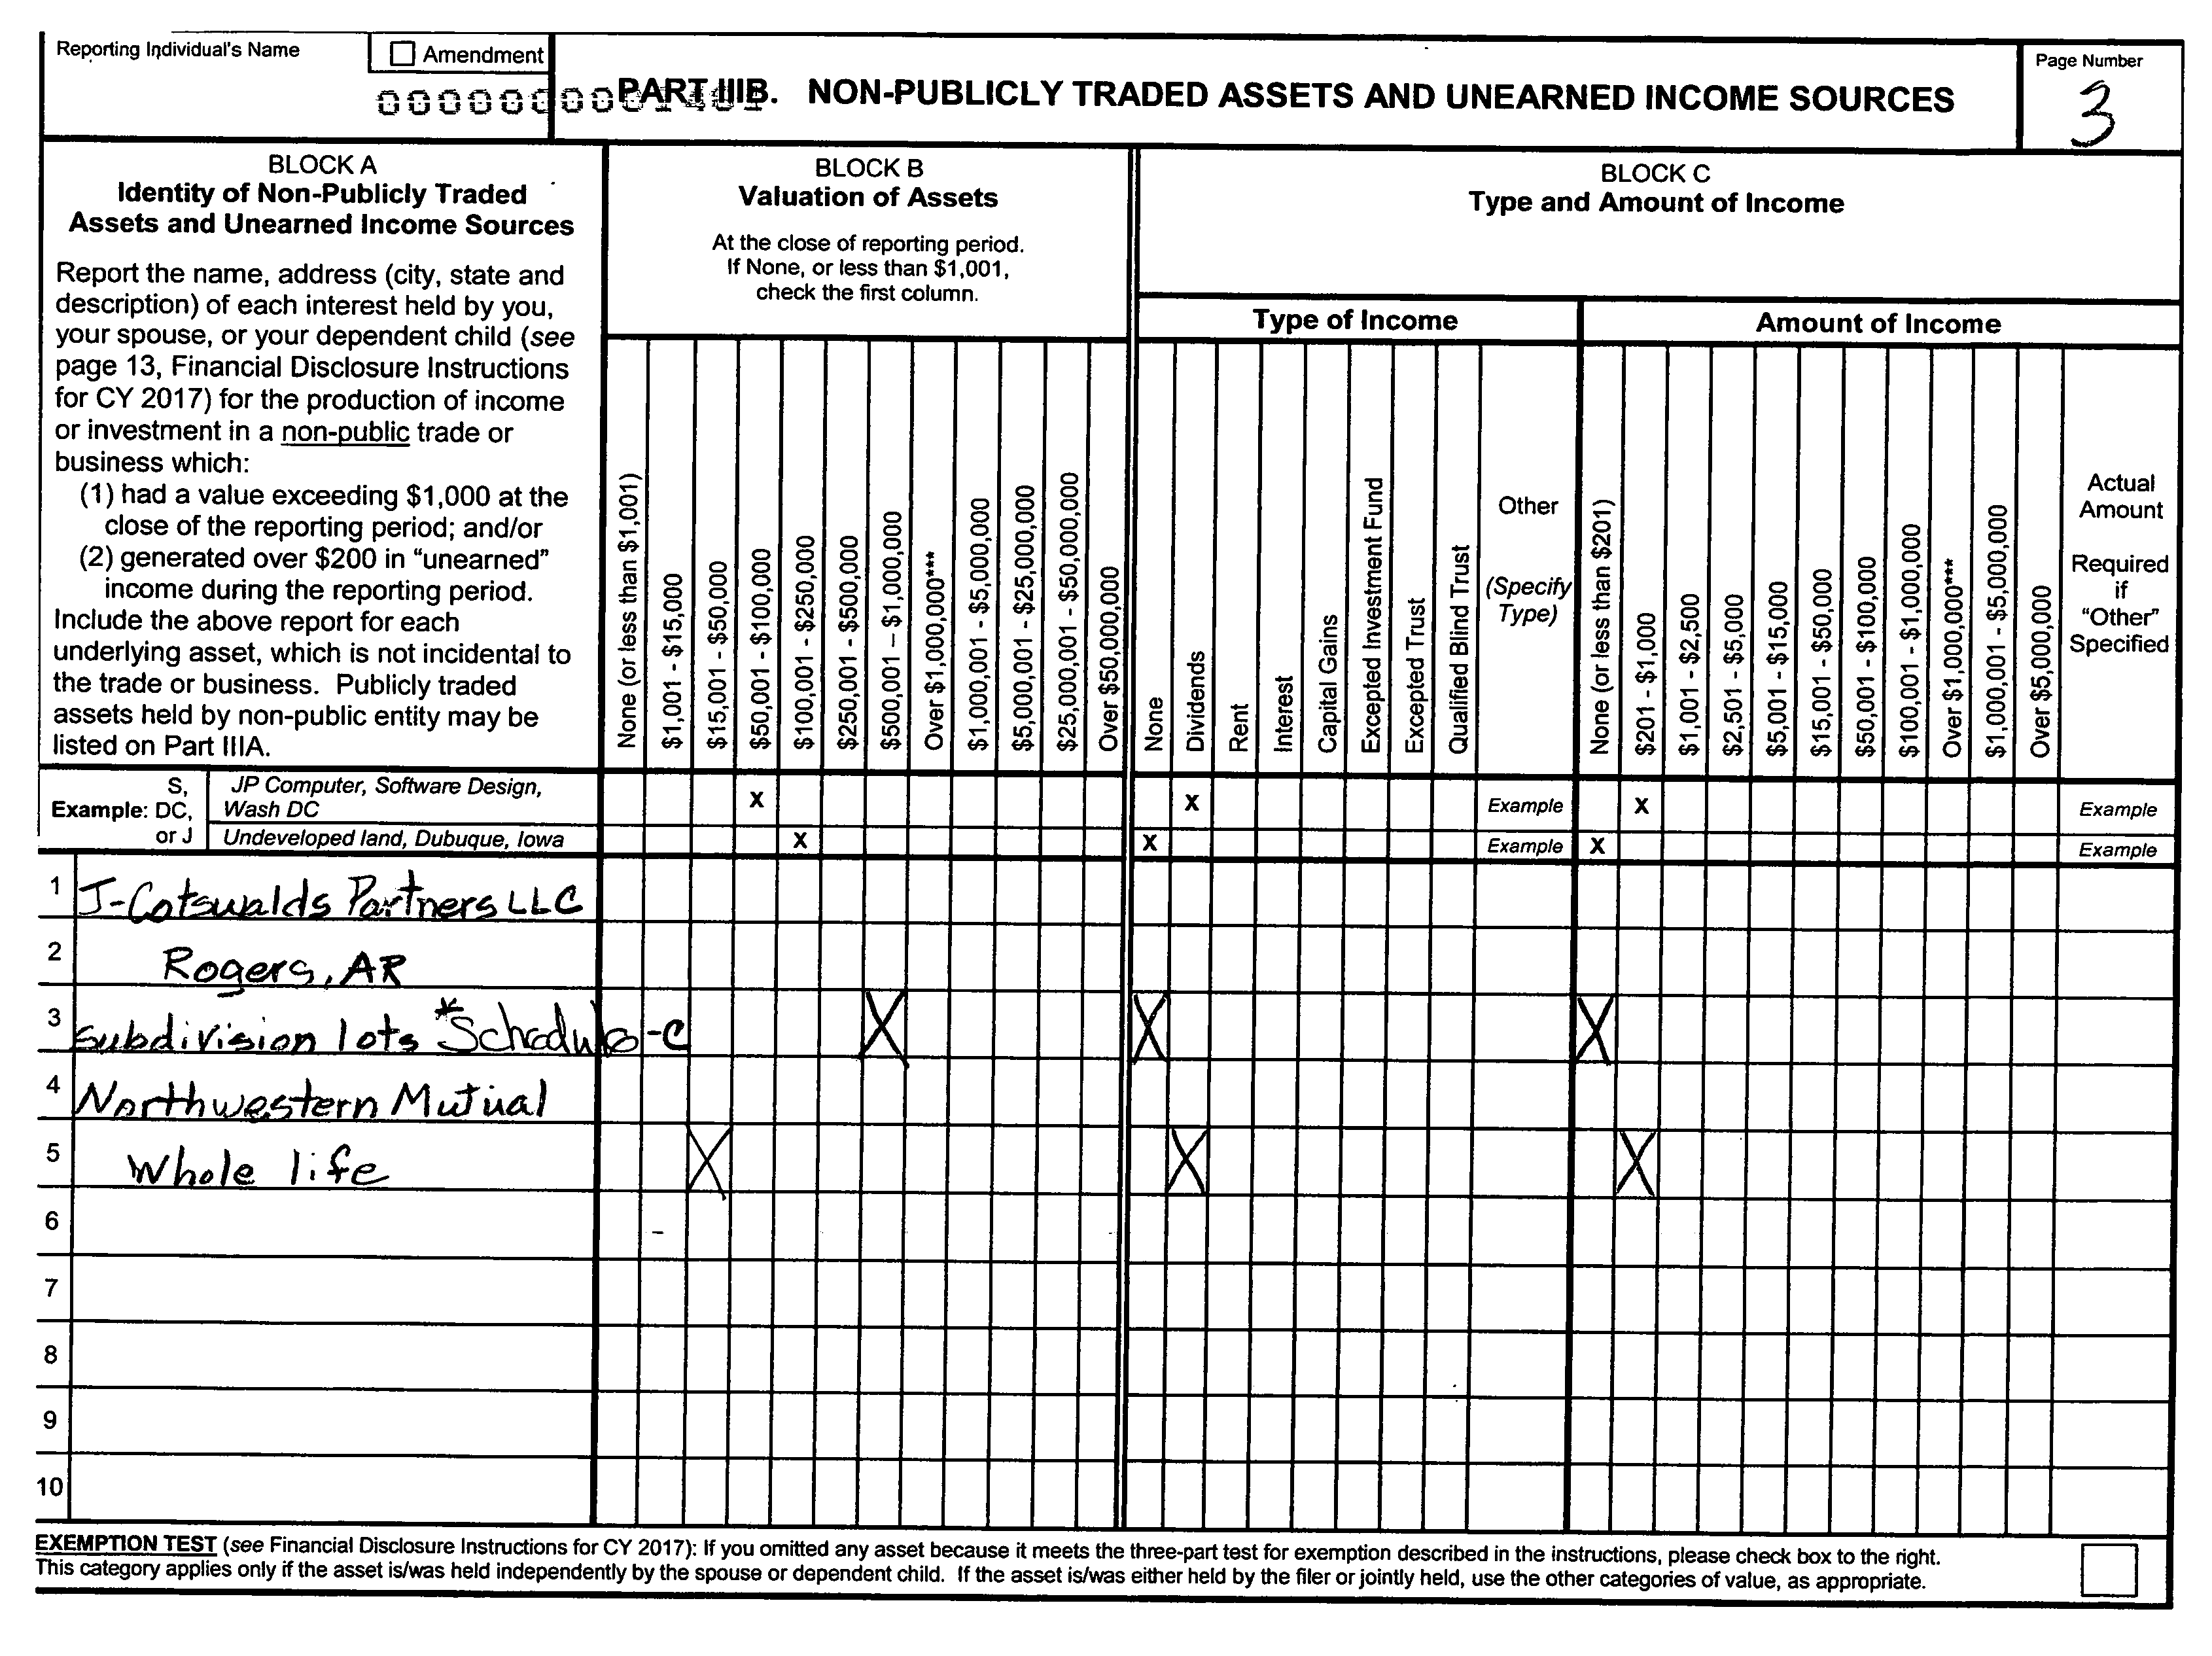 Reporting Individual's Name
Amendment
PART IIIB. NON-PUBLICLY TRADED ASSETS AND UNEARNED INCOME SOURCES
Page Number
3
BLOCK A
Identity of Non-Publicly Traded
Assets and Unearned Income Sources
Report the name, address (city, state and
description) of each interest held by you,
your spouse, or your dependent child (see
page 13, Financial Disclosure Instructions
for CY 2017) for the production of income
or investment in a non-public trade or
business which:
(1) had a value exceeding $1,000 at the
close of the reporting period; and/or
(2) generated over $200 in “unearned”
income during the reporting period.
Include the above report for each
underlying asset, which is not incidental to
the trade or business. Publicly traded
assets held by non-public entity may be
listed on Part IIIA.
BLOCK B
Valuation of Assets
At the close of reporting period.
If None, or less than $1,001,
check the first column.
None (or less than $1,001)
$1,001 - $15,000
$15,001 - $50,000
$50,001 - $100,000
$100,001 - $250,000
$250,001 - $500,000
$500,001 – $1,000,000
Over $1,000,000***
$1,000,001 - $5,000,000
$5,000,001 - $25,000,000
$25,000,001 - $50,000,000
Over $50,000,000
BLOCK C
Type and Amount of Income
Type of Income
None
Dividends
Rent
Interest
Capital Gains
Excepted Investment Fund
Excepted Trust
Qualified Blind Trust
Other
(Specify
Type)
Amount of Income
None (or less than $201)
$201 - $1,000
$1,001 - $2,500
$2,501 - $5,000
$5,001 - $15,000
$15,001 - $50,000
$50,001 - $100,000
$100,001 - $1,000,000
Over $1,000,000***
$1,000,001 - $5,000,000
Over $5,000,000
Actual
Amount
Required
if
“Other”
Specified
S,
Example: DC,
or J
JP Computer, Software Design,
Wash DC
X X Example X Example
Undeveloped land, Dubuque, Iowa X X Example X Example
1 J-Cotswalds Partners LLC
2 Rogers, AR
3 subdivision lots *Schedule-C X X X
4 Northwestern Mutual
5 Whole life X X X
6
7
8
9
10
EXEMPTION TEST (see Financial Disclosure Instructions for CY 2017): If you omitted any asset because it meets the three-part test for exemption described in the instructions, please check box to the right.
This category applies only if the asset is/was held independently by the spouse or dependent child. If the asset is/was either held by the filer or jointly held, use the other categories of value, as appropriate.